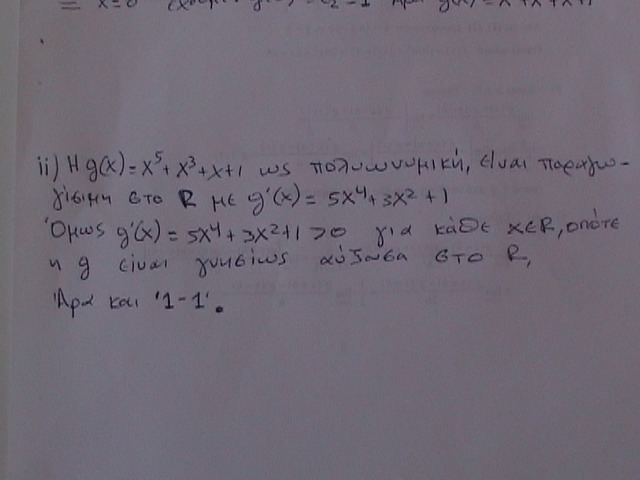 = x=0 g(x)=x⁵+x³+x+1
ii) Η g(x)=x⁵+x³+x+1 ως πολυωνυμική, είναι παραγω-
γίσιμη στο R με g'(x)=5x⁴+3x²+1
Όμως g'(x)=5x⁴+3x²+1>0 για κάθε x∈R, οπότε
η g είναι γνησίως αύξουσα στο R,
Άρα και '1-1'.